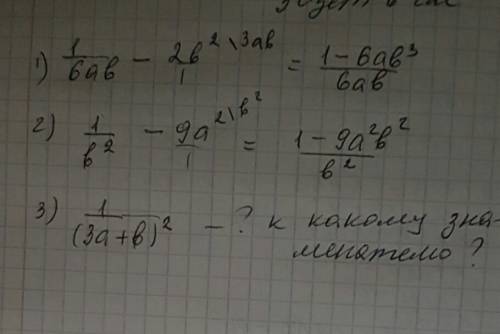 1) 1/6ab - 2b^2\3ab/1 = 1-6ab^3/6ab
2) 1/b^2 - 9a^2\b^2/1 = 1-9a^2b^2/b^2
3) 1/(3a+b)^2 - ? к какому зна-
менателю ?